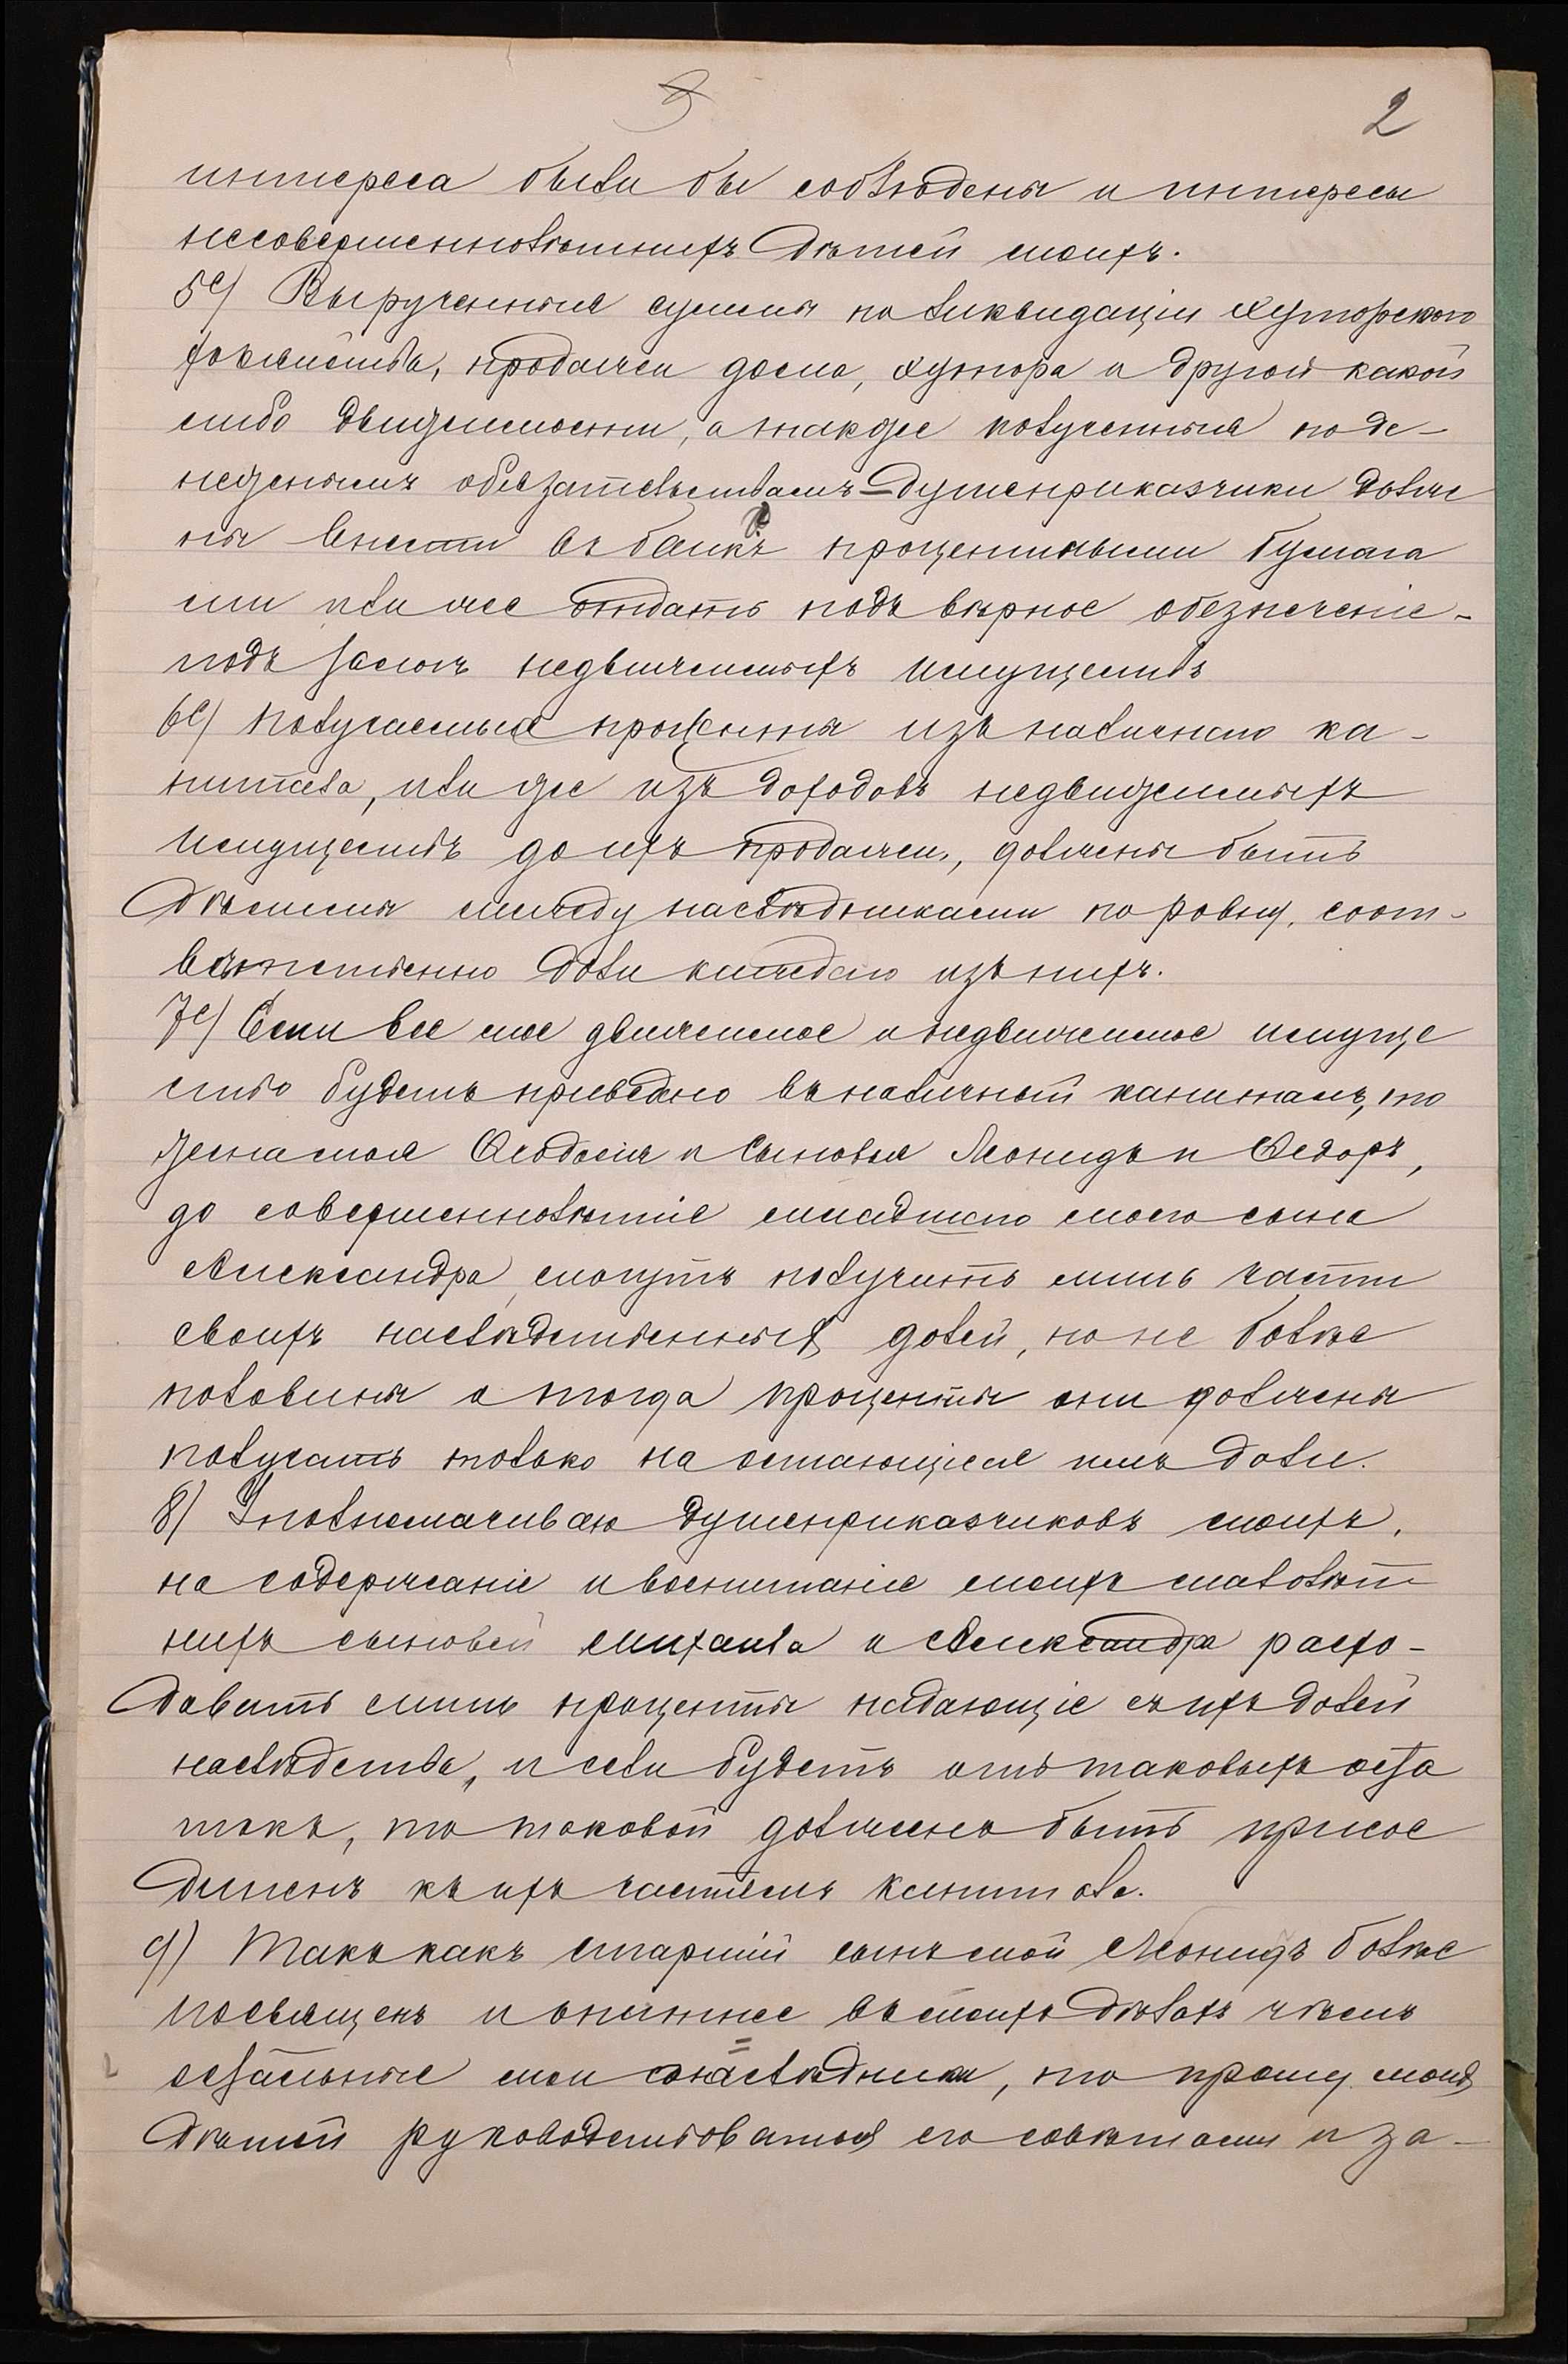 3
2
интереса были бы соблюдены и интересы
несовершеннолѣтнихъ дѣтей моихъ.
5е) Вырученныя суммы по ликвидаціи хуторского
хозяйства, продажи дома, хутора и другой какой
либо движимости, а также полученныя по де-
нежнымъ обязательствамъ - душеприказчики долж
ны внести въ банкъ процентными бумага
ми или же отдать подъ вѣрное обезпеченіе -
подъ залогъ недвижимыхъ имуществъ
6е) Получаемые проценты изъ наличнаго ка-
питала, или же изъ доходовъ недвижимыхъ
имуществъ до ихъ продажи, должны быть
дѣлимы между наслѣдниками по ровну, соот-
вѣтственно доли каждаго изъ нихъ.
7е) Если все мое движимое и недвижимое имуще
ство будетъ приведено въ наличный капиталъ, то
жена моя Ѳеодосія и сыновья Леонидъ и Ѳедоръ,
до совершеннолѣтія младшаго моего сына
Александра, могутъ получить лишь части
своихъ наслѣдственныхъ долей, но не болѣе
половины а тогда проценты они должны
получать только на остающіеся имъ доли.
8) Уполномачиваю душеприказчиковъ моихъ,
на содержаніе и воспитаніе моихъ малолѣт
нихъ сыновей Михаила и Александра расхо-
довать лишь проценты падающіе съ ихъ долей
наслѣдства, и если будетъ отъ таковыхъ оста
токъ, то таковой долженъ быть присое
диненъ къ ихъ частямъ капитала.
9) Такъ какъ старшій сынъ мой Леонидъ болѣе
посвященъ и опытнѣе въ моихъ дѣлахъ чѣмъ
остальные мои сонаслѣдники, то прошу моихъ
дѣтей руководствоваться его совѣтами и за-